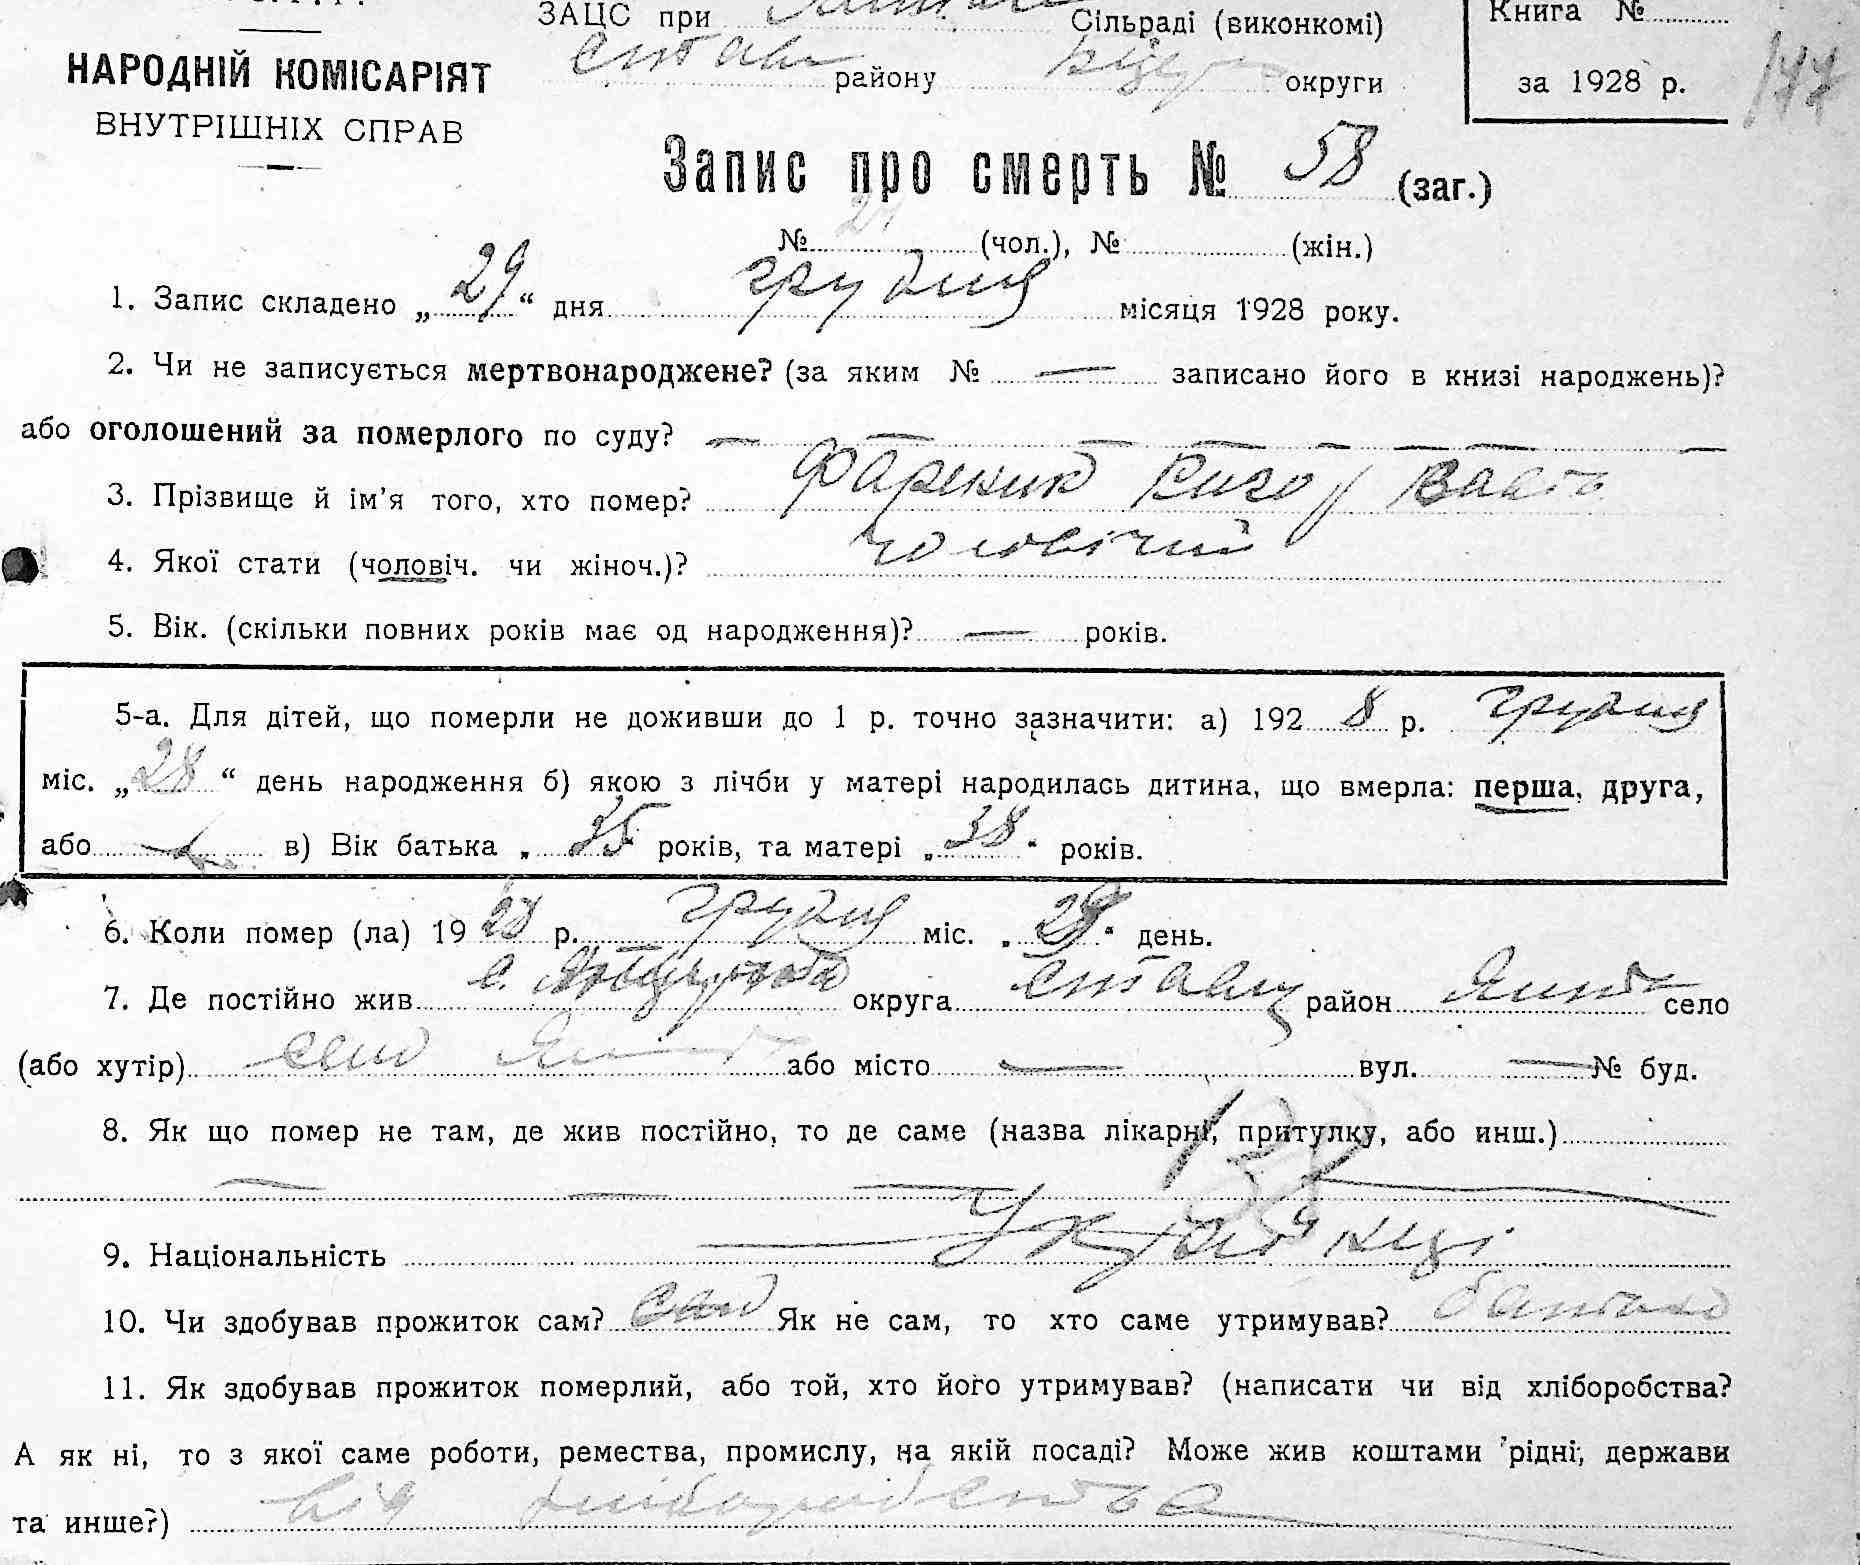 ЗАЦС при Сільраді (виконкомі)
Книга №
НАРОДНІЙ КОМІСАРІЯТ
Став району округи
за 1928 р.
ВНУТРІШНІХ СПРАВ
Запис про смерть № 58 (заг.)
№ (чол.), № (жін.)
1. Запис складено „29“ дня грудня місяця 1928 року.
2. Чи не записується мертвонароджене? (за яким № — записано його в книзі народжень)?
або оголошений за померлого по суду? — — — — — — — —
3. Прізвище й ім’я того, хто помер?
4. Якої стати (чоловіч. чи жіноч.)? чоловічий
5. Вік. (скільки повних років має од народження)? — років.
5-а. Для дітей, що померли не доживши до 1 р. точно зазначити: а) 1928 р. грудня
міс. „28“ день народження б) якою з лічби у матері народилась дитина, що вмерла: перша, друга,
або в) Вік батька „35 років, та матері „38“ років.
6. Коли помер (ла) 1928 р. грудня міс. „ “ день.
7. Де постійно жив округа район село
(або хутір) село або місто — вул. — № буд.
8. Як що помер не там, де жив постійно, то де саме (назва лікарні, притулку, або инш.)
— — —
9. Національність
10. Чи здобував прожиток сам? Як не сам, то хто саме утримував? батько
11. Як здобував прожиток померлий, або той, хто його утримував? (написати чи від хліборобства?
А як ні, то з якої саме роботи, ремества, промислу, на якій посаді? Може жив коштами рідні, держави
та инше?) від хліборобства